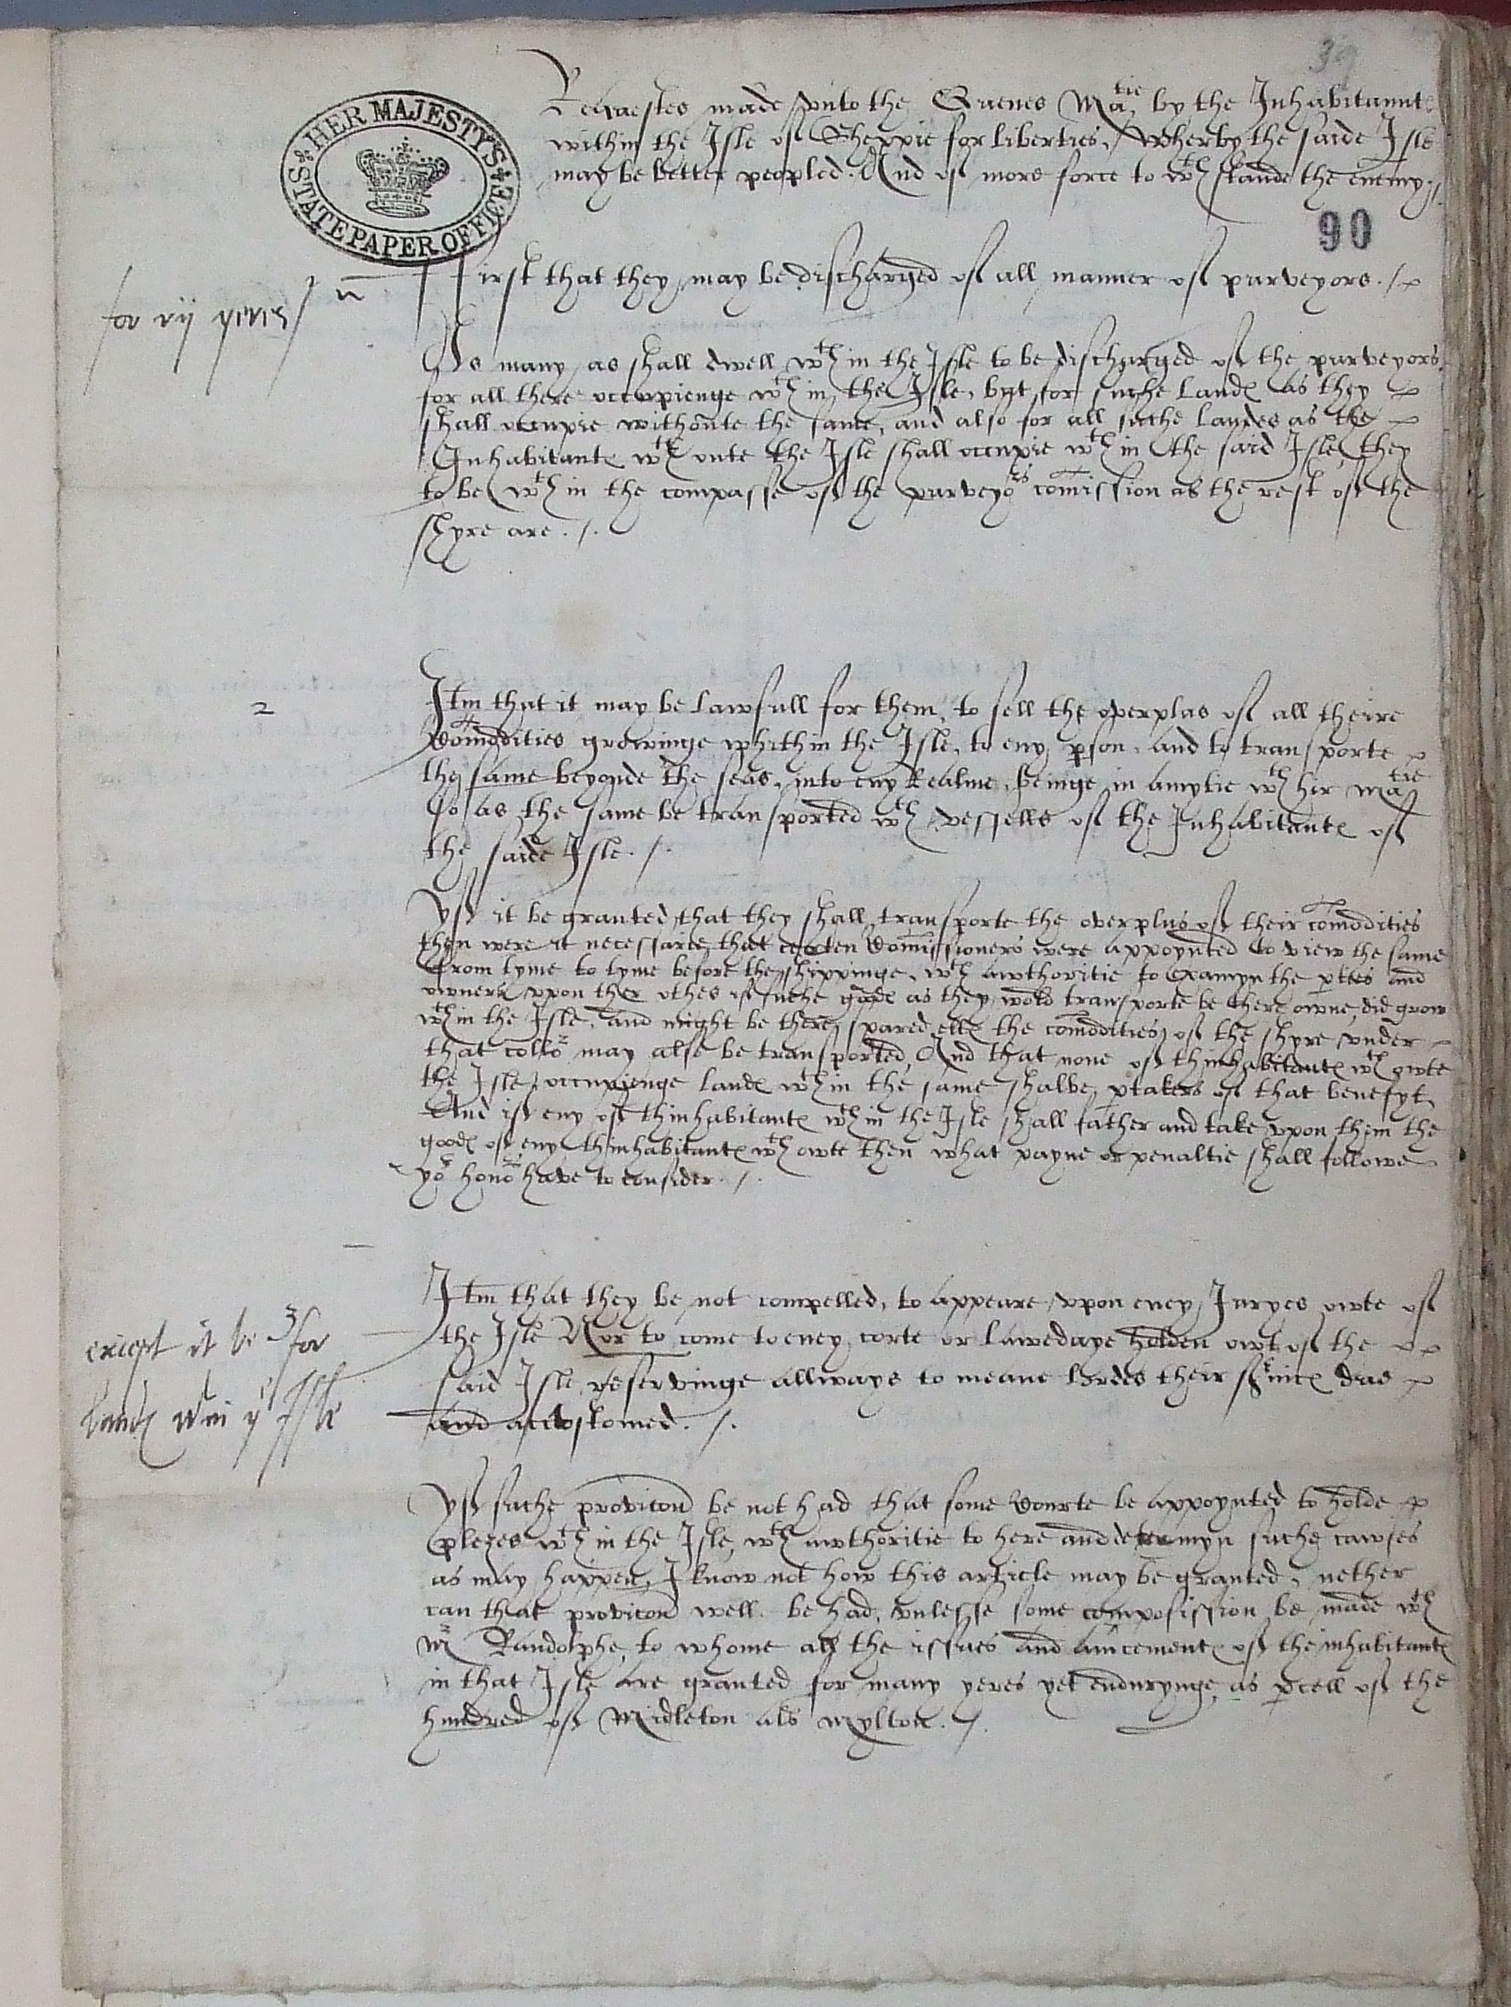 39
Requestes made vnto the Quenes Matie by the Inhabitannts
within the Isle of Sheppie for liberties, Wherby the saide Isle
may be better peopled. And of more force to wth stande the enemy ./.
HER MAJESTY'S
STATE PAPER OFFICE
90
First that they may be discharged of all manner of purveyors ./.
for vij yeres
As many as shall dwell wth in the Isle to be discharged of the purveyors
for all there occupienge wth in the Isle, but for suche Landes as they
shall occupie withoute the same, and also for all suche Landes as the
Inhabitantes wth oute the Isle shall occupie wth in the said Isle they
to be wth in the compasse of the purveyors comission as the rest of the
shyre are ./.
2
Itm that it may be Lawfull for them, to sell the overplus of all theire
Comodities growinge whithin the Isle, to eny pson, and to transporte
the same beyonde the seas, into eny Realme, beinge in amytie wth hir Matie
so as the same be transported wth vessells of the Inhabitantes of
the saide Isle ./.
Yf it be granted that they shall transporte the overplus of their comodities
then were it necessarie that certen Comissioners were appoynted to view the same
from tyme to tyme before the shippinge, wth awthoritie to examyn the pties and
owners vpon ther othes if suche goode as they wold transporte be there owne, did grow
wth in the Isle, and might be there spared elles the comodities of the shyre vnder
that collor may alse be transported, And that none of thinhabitantes wth owte
the Isle occupienge Landes wth in the same shalbe ptakers of that benefyt,
And if eny of thinhabitantes wth in the Isle shall father and take vpon them the
goodes of eny thinhabitantes wth owte then what payne or penaltie shall followe
yor honor have to consider ./.
3
Itm that they be not compelled, to appeare vpon eney Juryes owte of
the Isle Nor to come to eney corte or Lawedaye holden owt of the
said Isle, reservinge allways to meane Lordes their svices dus
and accustomed ./.
except it be for
landes wthin ye Isle
Yf suche provicon be not had that some Courte be appoynted to holde
pleyes wth in the Isle, wth awthoritie to here and determyn suche cawses
as may happen, I know not how this article may be granted, nether
can that provicon well be had, vnlesse some composission be made wth
Mr Randolphe, to whome all the issues and amcementes of the inhabitantes
in that Isle are granted for many yeres yet endurynge, as pcell of the
hundred of Midleton als Mylton ./.